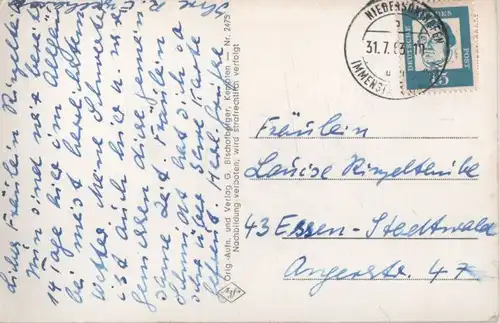 Liebes Fräulein Ringel
Nun sind wir bereits
14 Tage hier im Allgäu
bei meist herrl. schönem
Wetter. Meine Schwester
ist auch hier u. wir
genießen diese gemein-
same Zeit. Fräulein
Schmidt hat sich
sehr über Ihre Karte
gefreut. Herzl. Grüße
Ihre
Orig.-Aufn. und Verlag G. Bischofberger, Kempten — Nr. 2475
Nachbildung verboten, wird strafrechtlich verfolgt
Agfa
31.7.63
IMMENST
DEUTSCHE
BUNDES
POST
15
Fräulein
Louise Ringel
43 Essen-Stadtwald
Angerstr. 47